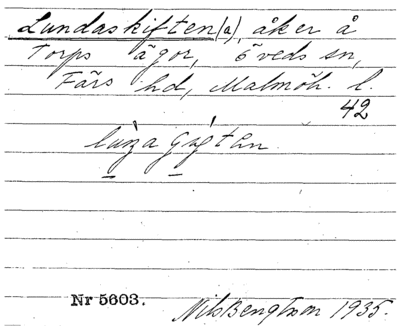 Lundaskiften(a), åker å
Torps ägor, Öveds sn,
Färs hd, Malmöh. l.
42
Nr 5603. Nils Bengtsson 1935.